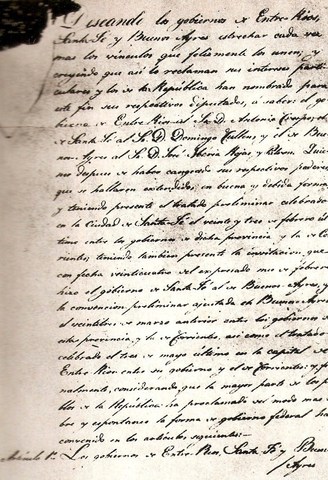 Deseando los gobiernos de Entre-Rios,
Santa Fé y Buenos Ayres estrechar cada vez
mas los vinculos que felizmente los unen; y
creyendo que asi lo reclaman sus intereses parti-
culares y los de la República han nombrado para
este fin sus respectivos diputados, á saber: el go-
bierno de Entre Rios al S. D. Antonio Crespo; el
de Santa Fé al S. D. Domingo Cullen; y el de Bue-
nos Ayres al S. D. José Maria Rojas; quie-
nes despues de haber cangeado sus respectivos poderes,
que se hallaron extendidos en buena y debida forma;
y teniendo presente el tratado preliminar celebrado
en la Ciudad de Santa Fé el veinte y tres de febrero úl-
timo entre los gobiernos de dicha provincia y la de Co-
rrientes; teniendo tambien presente la invitacion que
con fecha veinticuatro del expresado mes de febrero
hizo el gobierno de Santa Fé al de Buenos Ayres, y
la convencion preliminar ajustada en Buenos Ayres
el veintitres de marzo anterior entre los gobiernos de
esta provincia y la de Corrientes, asi como el tratado
celebrado el tres de mayo último en la capital de
Entre Rios entre su gobierno y el de Corrientes; y fi-
nalmente, considerando que la mayor parte de los pue-
blos de la República ha proclamado del modo mas li-
bre y espontaneo la forma de gobierno federal han
convenido en los articulos siguientes:
Articulo 1º Los gobiernos de Entre-Rios, Santa Fé y Buenos
Ayres